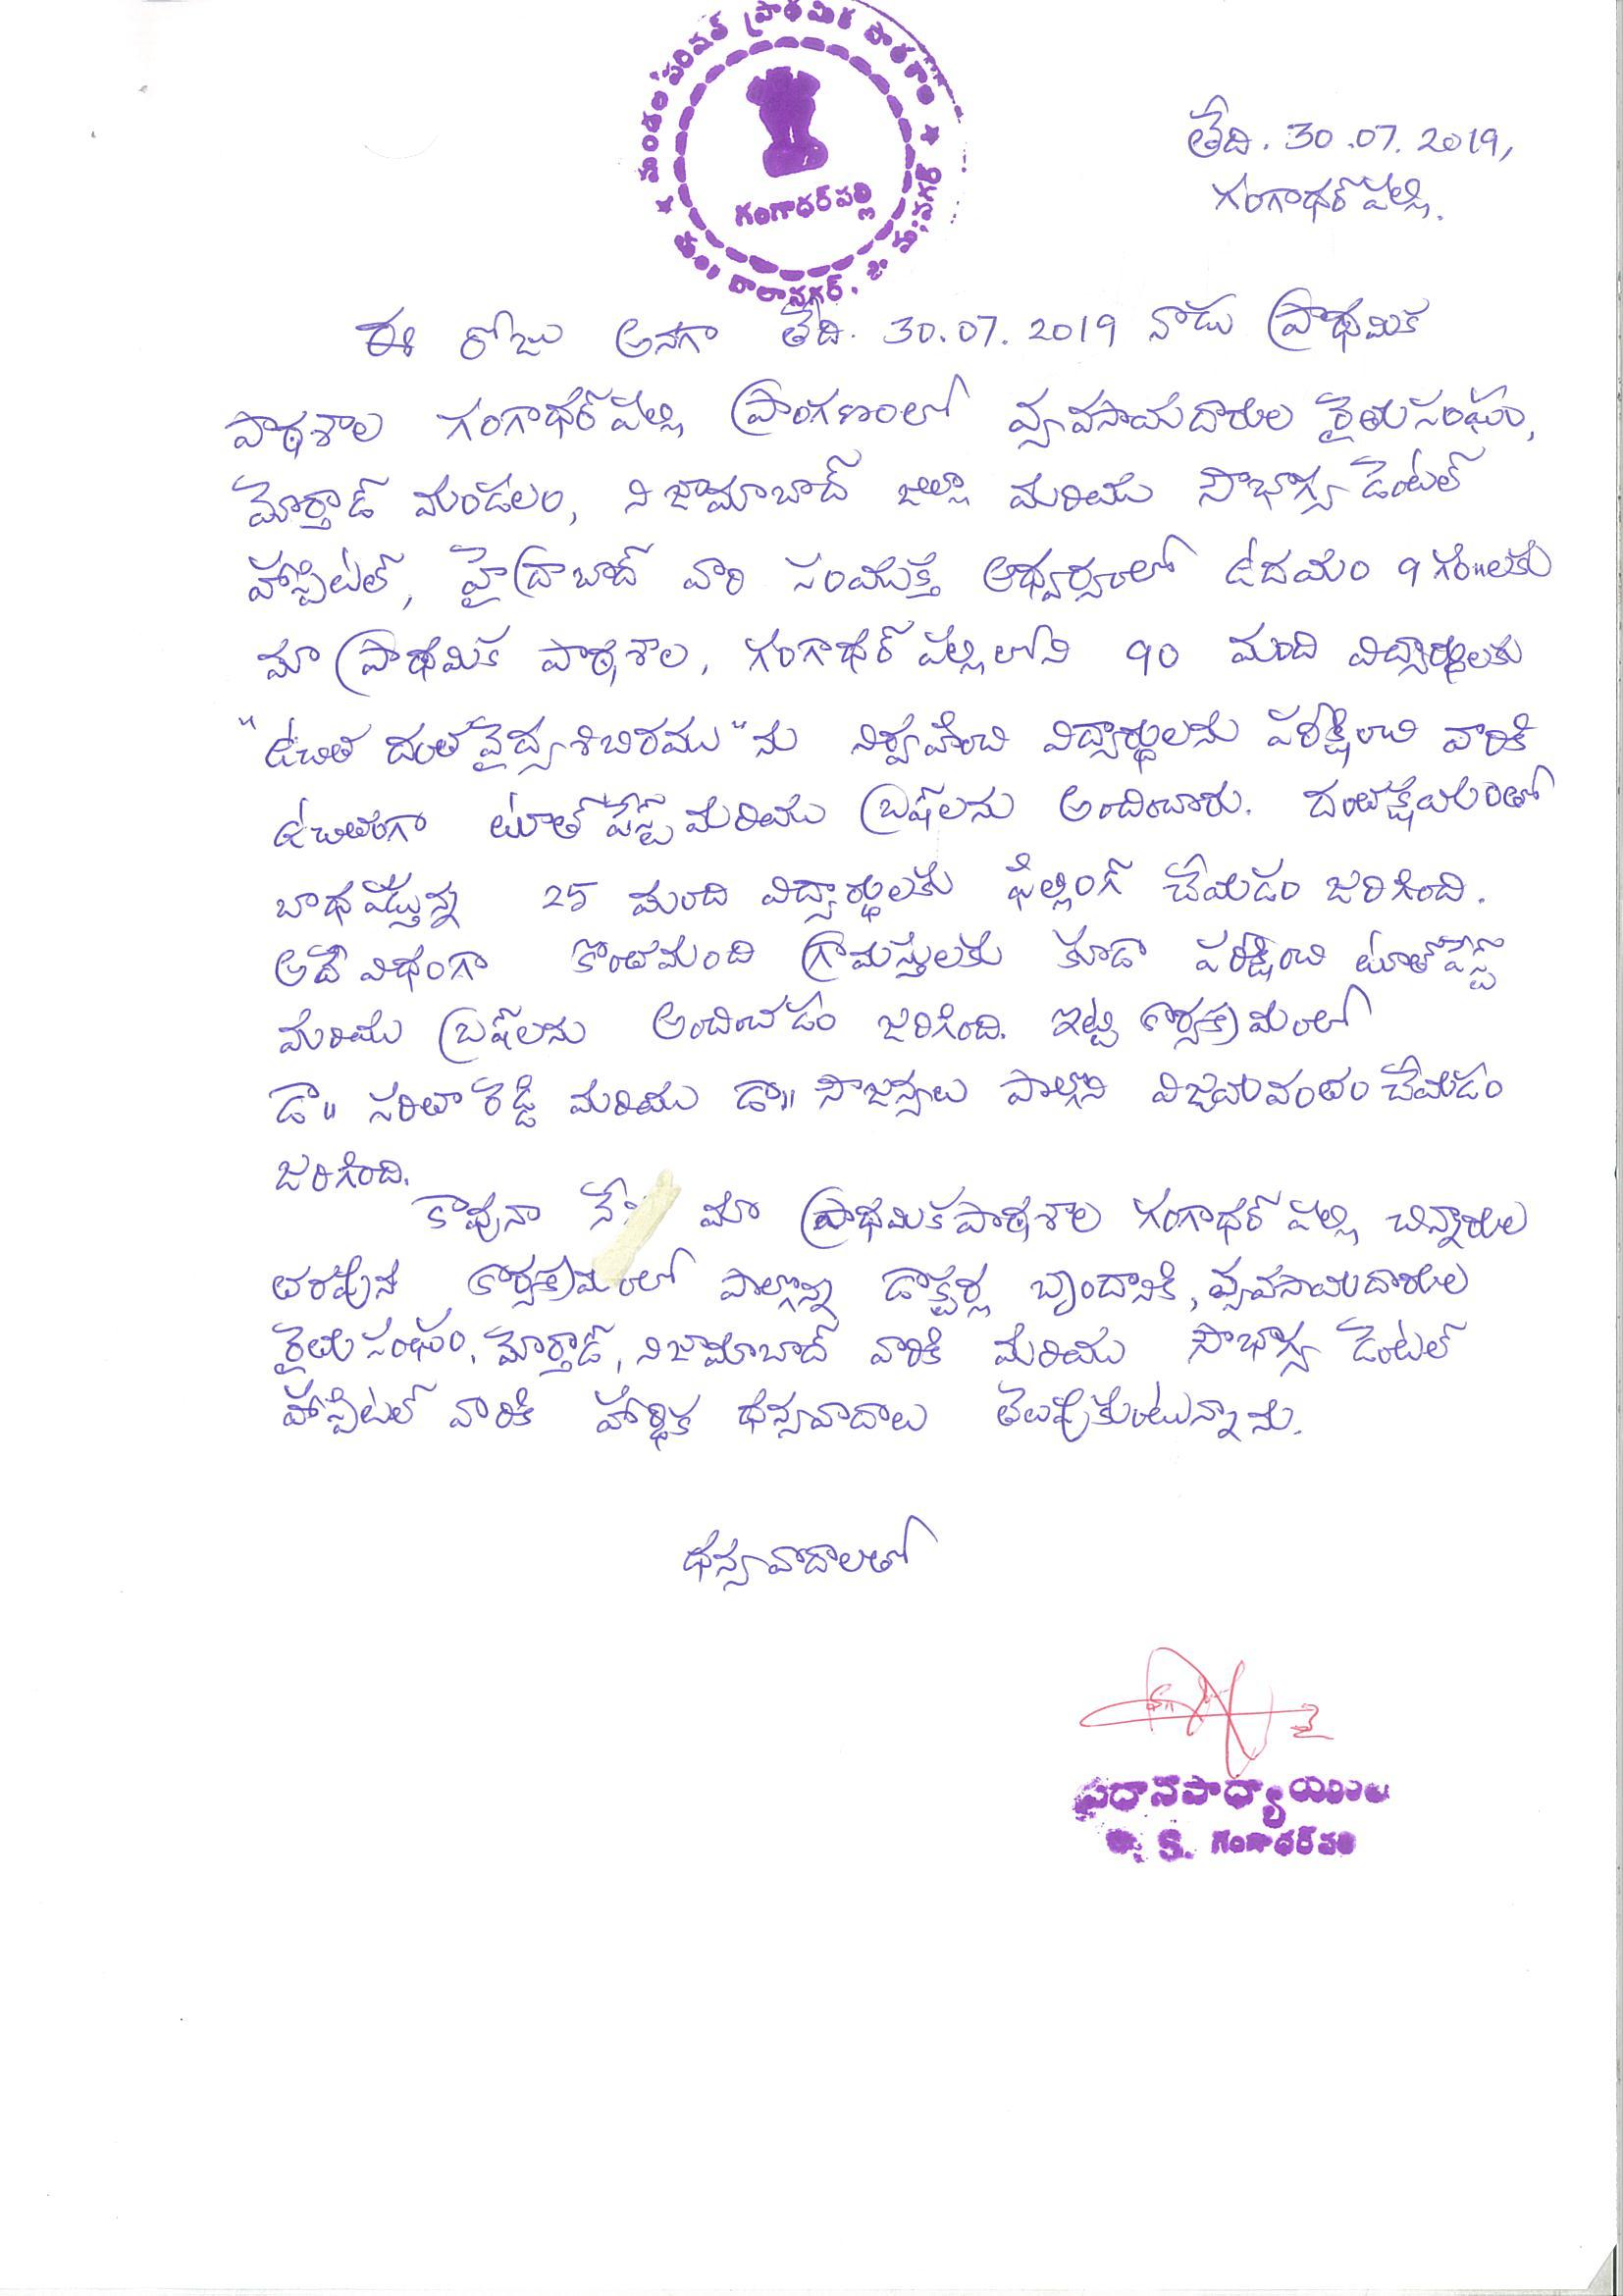 మండల పరిషత్ ప్రాథమిక పాఠశాల
గంగాధర్ పల్లి
బాలానగర్.
తేది. 30.07.2019,
గంగాధర్ పల్లి.
ఈ రోజు అనగా తేది. 30.07.2019 నాడు ప్రాథమిక
పాఠశాల గంగాధర్ పల్లి ప్రాంగణంలో వ్యవసాయదారుల రైతు సంఘం,
మోర్తాడ్ మండలం, నిజామాబాద్ జిల్లా మరియు సౌభాగ్య డెంటల్
హాస్పిటల్, హైద్రాబాద్ వారి సంయుక్త ఆధ్వర్యంలో ఉదయం 9 గం॥లకు
మా ప్రాథమిక పాఠశాల, గంగాధర్ పల్లిలోని 90 మంది విద్యార్థులకు
"ఉచిత దంత వైద్య శిబిరము"ను నిర్వహించి విద్యార్థులను పరీక్షించి వారికి
ఉచితంగా టూత్ పేస్ట్ మరియు బ్రష్‌లను అందించారు. దంతక్షయంతో
బాధపడ్తున్న 25 మంది విద్యార్థులకు ఫిల్లింగ్ చేయడం జరిగింది.
అదే విధంగా కొంతమంది గ్రామస్తులకు కూడా పరీక్షించి టూత్ పేస్ట్
మరియు బ్రష్‌లను అందించడం జరిగింది. ఇట్టి కార్యక్రమంలో
డా॥ సరితా రెడ్డి మరియు డా॥ సౌజన్యలు పాల్గొని విజయవంతం చేయడం
జరిగింది.
కావునా మా ప్రాథమిక పాఠశాల గంగాధర్ పల్లి చిన్నారుల
తరపున కార్యక్రమంలో పాల్గొన్న డాక్టర్ల బృందానికి, వ్యవసాయదారుల
రైతు సంఘం, మోర్తాడ్, నిజామాబాద్ వారికి మరియు సౌభాగ్య డెంటల్
హాస్పిటల్ వారికి హార్థిక ధన్యవాదాలు తెలుపుకుంటున్నాను.
ధన్యవాదాలతో
ప్రధానపాధ్యాయులు
S. గంగాధర్ పల్లి